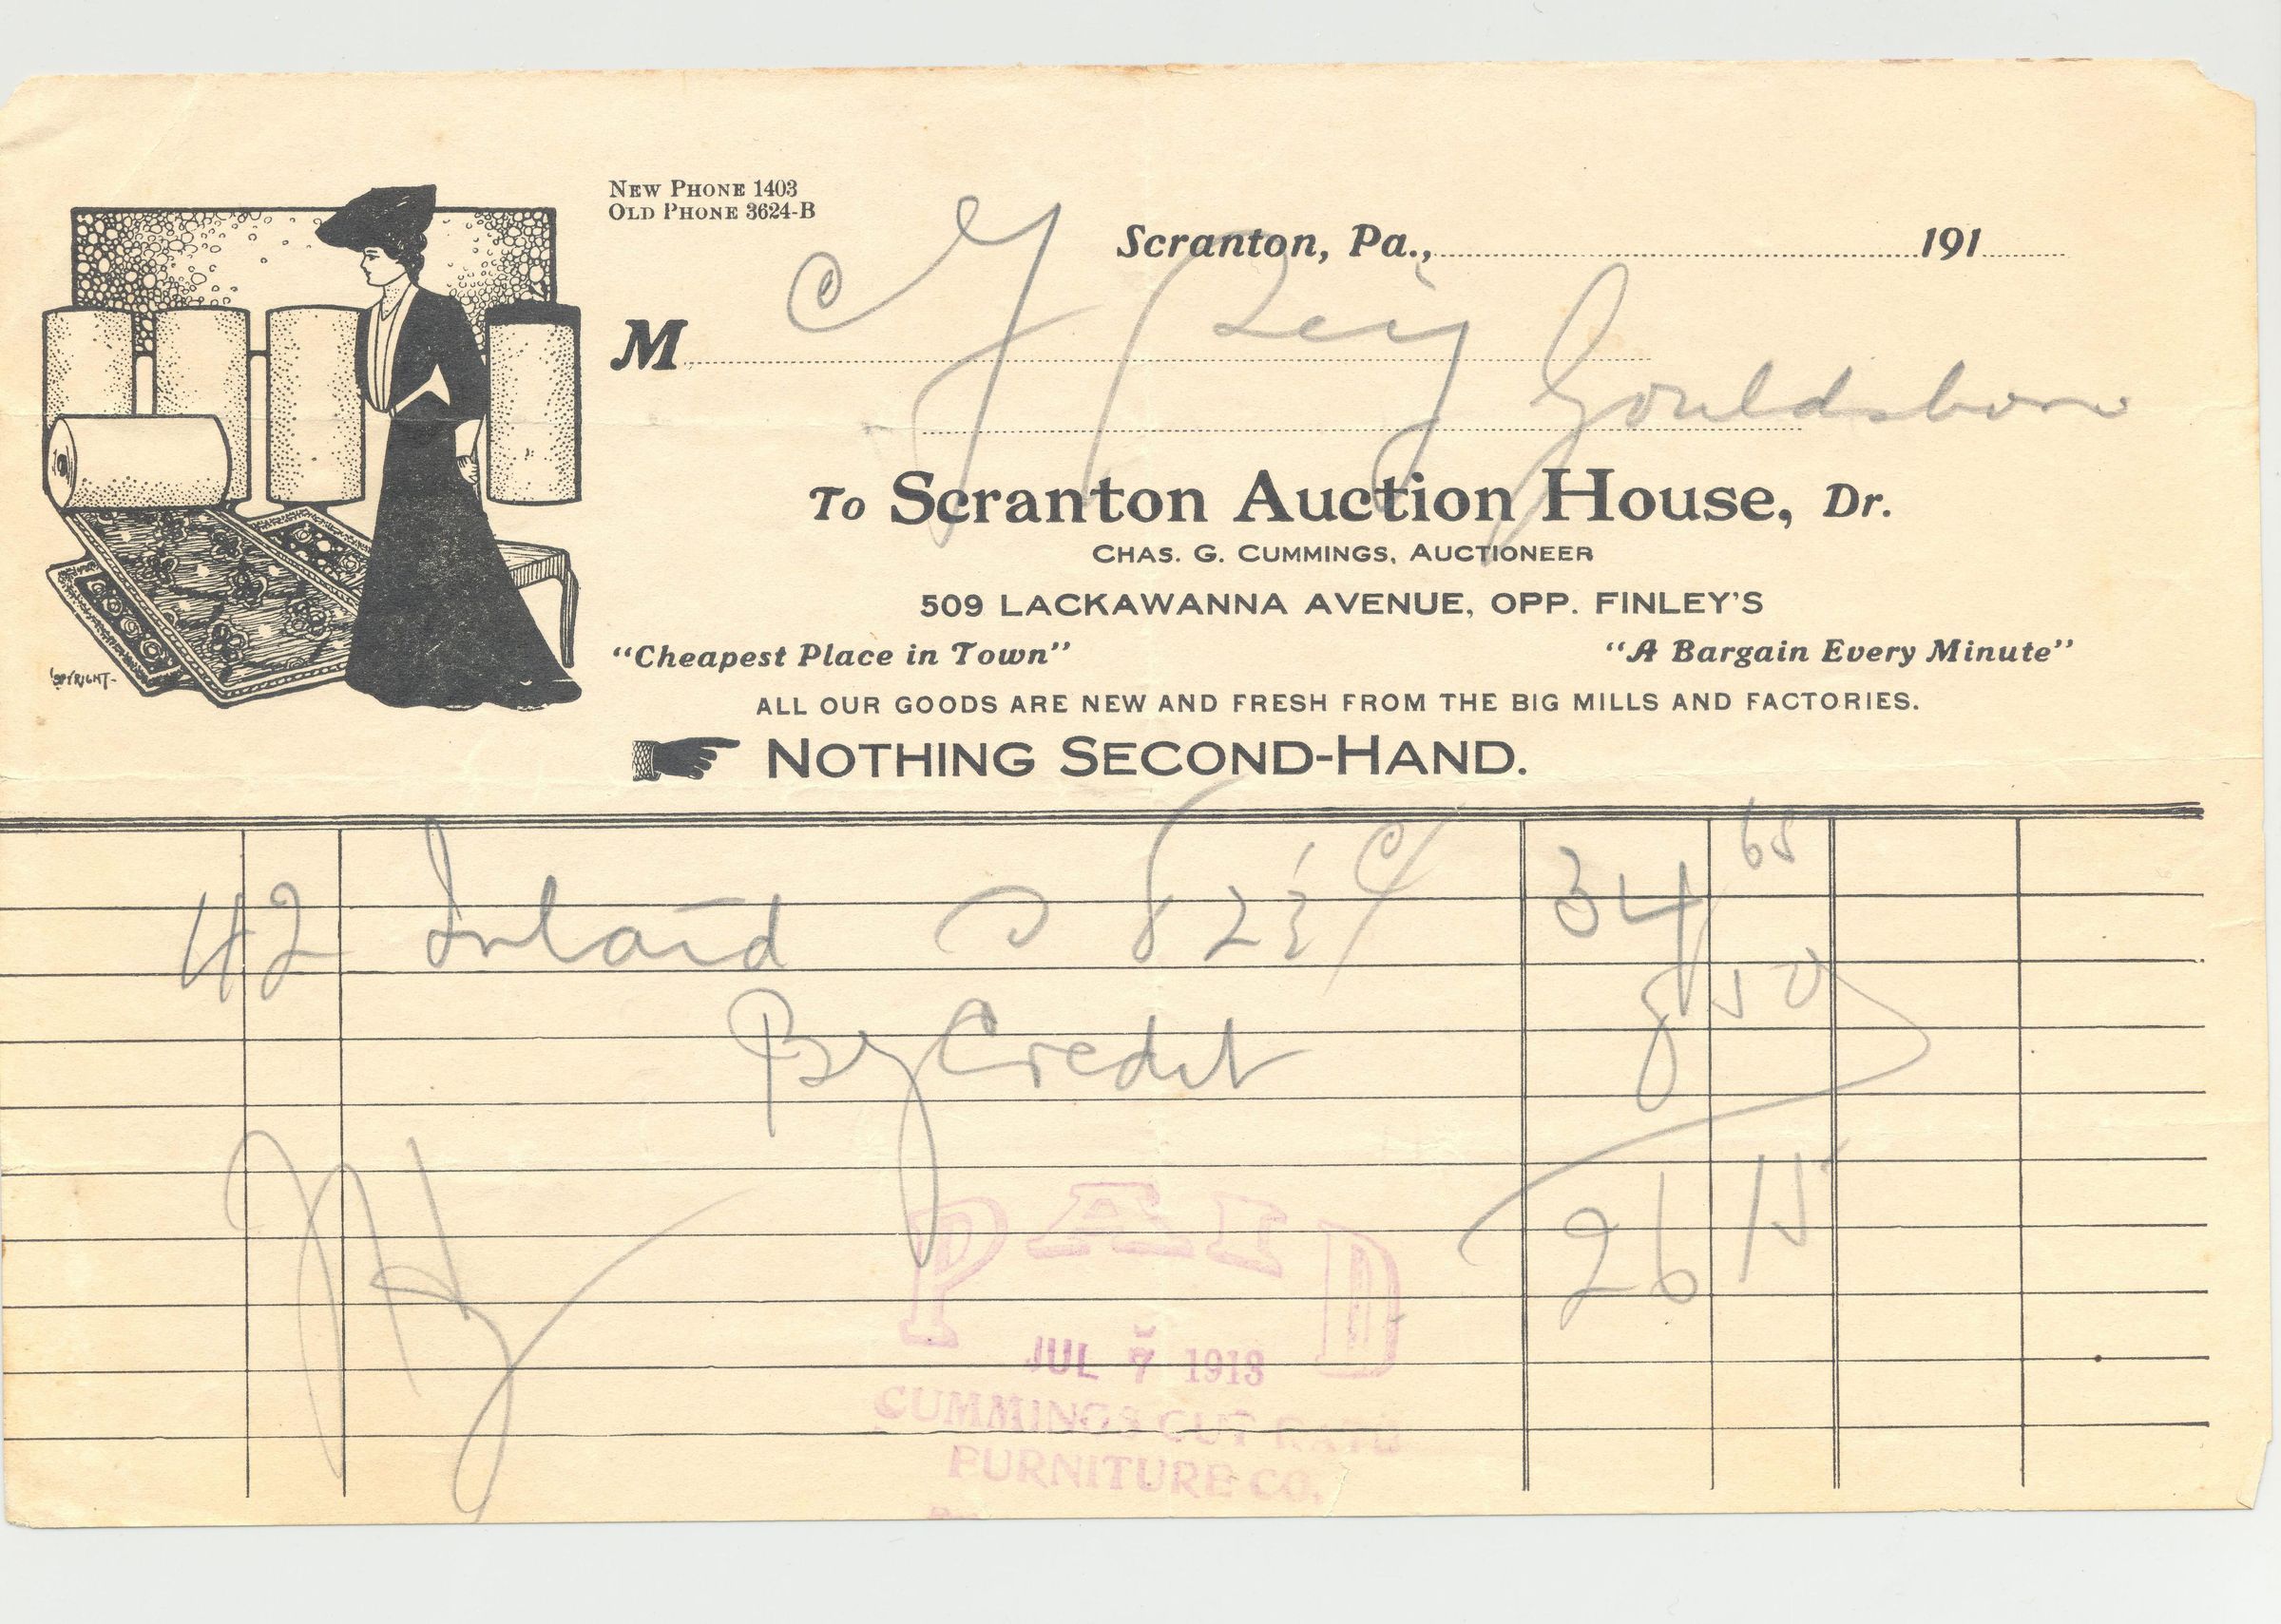 NEW PHONE 1403
OLD PHONE 3624-B
Scranton, Pa., 191
M
Gouldsboro
To Scranton Auction House, Dr.
CHAS. G. CUMMINGS, AUCTIONEER
509 LACKAWANNA AVENUE, OPP. FINLEY'S
"Cheapest Place in Town" "A Bargain Every Minute"
ALL OUR GOODS ARE NEW AND FRESH FROM THE BIG MILLS AND FACTORIES.
NOTHING SECOND-HAND.
COPYRIGHT-
42 Inlaid 82½ ¢ 34 65
By Credit 8 50
26 15
PAID
JUL 7 1913
CUMMINGS CUT RATE
FURNITURE CO.